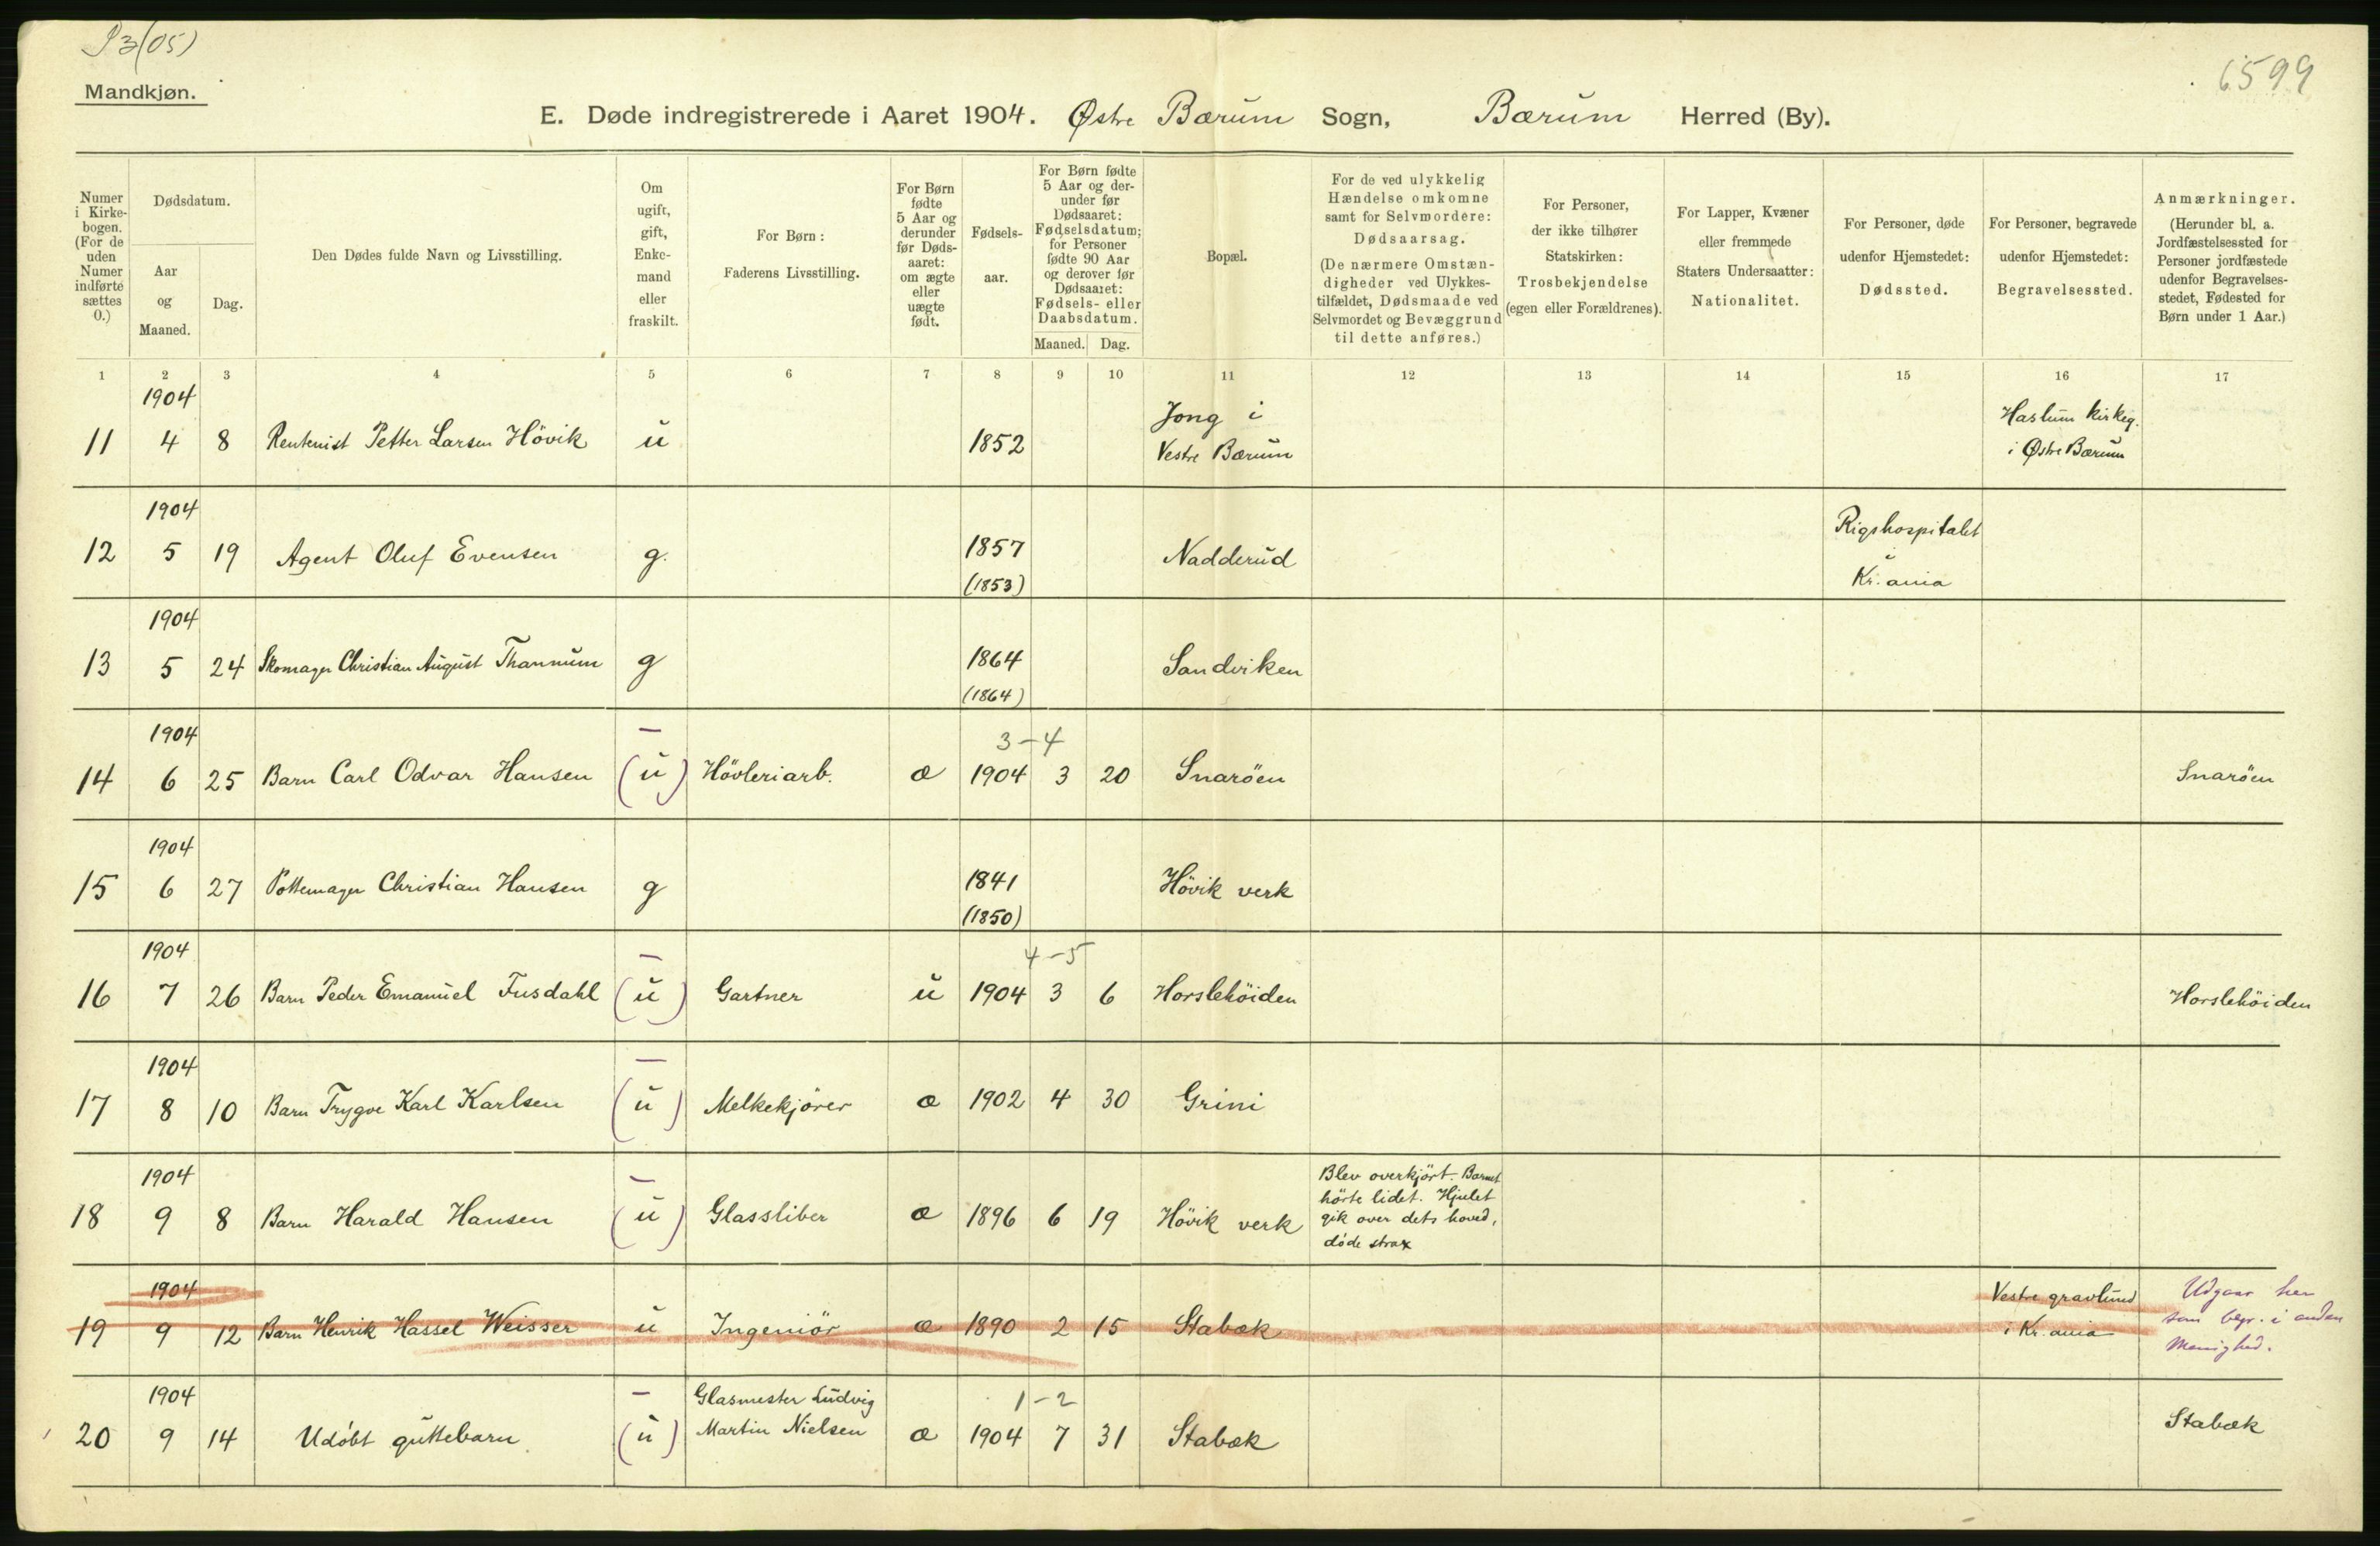 S3(05)
6599
Mandkjøn.
E. Døde indregistrerede i Aaret 1904. Østre Bærum Sogn, Bærum Herred (By).
Numer i Kirkebogen. (For de uden Numer indførte sættes 0.)
Dødsdatum.
Aar og Maaned.
Dag.
Den Dødes fulde Navn og Livsstilling.
Om ugift, gift, Enkemand eller fraskilt.
For Børn:
Faderens Livsstilling.
For Børn fødte 5 Aar og derunder før Dødsaaret: om ægte eller uægte født.
Fødselsaar.
For Børn fødte 5 Aar og derunder før Dødsaaret: Fødselsdatum; for Personer fødte 90 Aar og derover før Dødsaaret: Fødsels- eller Daabsdatum.
Maaned. Dag.
Bopæl.
For de ved ulykkelig Hændelse omkomne samt for Selvmordere: Dødsaarsag. (De nærmere Omstændigheder ved Ulykkestilfældet, Dødsmaade ved Selvmordet og Bevæggrund til dette anføres.)
For Personer, der ikke tilhører Statskirken: Trosbekjendelse (egen eller Forældrenes).
For Lapper, Kvæner eller fremmede Staters Undersaatter: Nationalitet.
For Personer, døde udenfor Hjemstedet: Dødssted.
For Personer, begravede udenfor Hjemstedet: Begravelsessted.
Anmærkninger. (Herunder bl. a. Jordfæstelsessted for Personer jordfæstede udenfor Begravelsesstedet, Fødested for Børn under 1 Aar.)
1 2 3 4 5 6 7 8 9 10 11 12 13 14 15 16 17
1904 Jong i Haslum kirkeg.
11 4 8 Rentenist Petter Larsen Hövik u 1852 Vestre Bærum i Østre Bærum
1904 Rigshospitalet
12 5 19 Agent Oluf Evensen g. 1857 Nadderud i
(1853) Kr.ania
1904
13 5 24 Skomager Christian August Thannum g 1864 Sandviken
(1864)
1904 – 3-4
14 6 25 Barn Carl Odvar Hansen (u) Hövleriarb. æ 1904 3 20 Snaröen Snaröen
1904
15 6 27 Pottemager Christian Hansen g 1841 Hövik verk
(1850)
1904 – 4-5
16 7 26 Barn Peder Emanuel Fusdahl (u) Gartner u 1904 3 6 Horslehöiden Horslehöiden
1904 –
17 8 10 Barn Trygve Karl Karlsen (u) Melkekjörer æ 1902 4 30 Grini
1904 – Blev overkjört. Barnet
hörte lidet. Hjulet
18 9 8 Barn Harald Hansen (u) Glassliber æ 1896 6 19 Hövik verk gik over dets hoved,
döde strax
1904 Vestre gravlund Udgaar her
19 9 12 Barn Henrik Hassel Weisser u Ingeniör æ 1890 2 15 Stabæk i Kr.ania som begr. i anden
Menighed.
1904 – Glasmester Ludvig 1-2
20 9 14 Udöbt guttebarn (u) Martin Nielsen æ 1904 7 31 Stabæk Stabæk